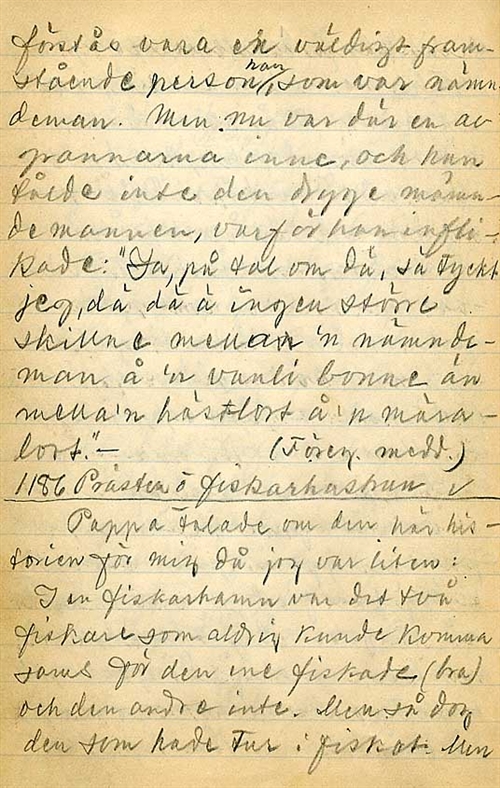 förstås vara en väldigt fram-
stående person han, som var nämn
deman. Men nu var där en av
grannarna inne, och han
tålde inte den dryge nämn-
demannen, varför han infli-
kade: "Ja, på tal om då, så tyckt
jeg, då då ä ingen större
skillne mellan 'n nämnde-
man å 'n vanli bonne än
mella'n hästlort å 'n mära-
lort." —
(Föreg. medd.)
1186 Prästen o fiskarhustrun ✓
Pappa talade om den här his-
torien för mig då jag var liten:
I en fiskarhamn var det två
fiskare som aldrig kunde komma
sams för den ene fiskade (bra)
och den andre inte. Men så dog
den som hade tur i fisket. Men